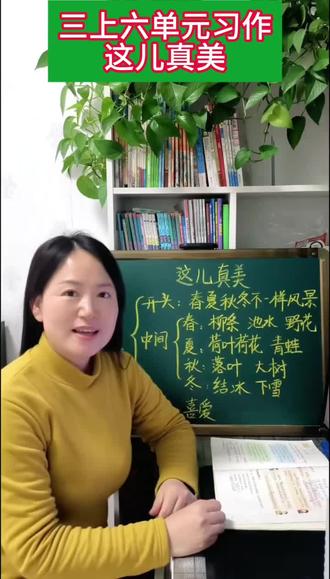 三上六单元习作
这儿真美
这儿真美
开头：春夏秋冬不一样风景
中间
春：柳条 池水 野花
夏：荷叶荷花 青蛙
秋：落叶 大树
冬：结冰 下雪
喜爱